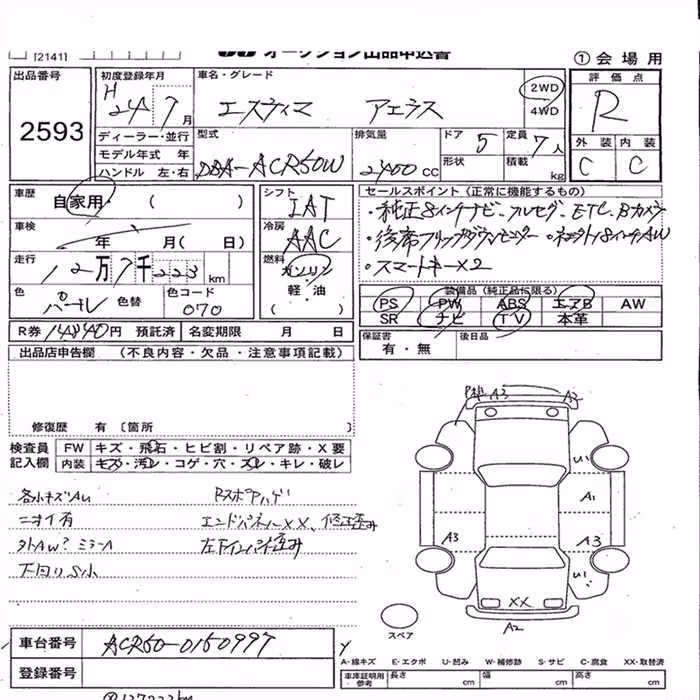 [2141]
オークション出品申込書
①会場用
出品番号
2593
初度登録年月
H
24 7月
車名・グレード
エスティマ アエラス
2WD
4WD
評価点
R
外装 内装
C C
ディーラー・並行
モデル年式 年
ハンドル 左・右
型式
DBA-ACR50W
排気量
2400cc
ドア 5
形状
定員 7人
積載 kg
車歴
自家用・( )
車検
年 月( 日)
走行
12万7千223km
色
パール
色替
色コード
070
シフト
IAT
冷房
AAC
燃料
ガソリン
軽・油
( )
セールスポイント(正常に機能するもの)
・純正8インチナビ・フルセグ・ETC・Bカメラ
・後席フリップダウンモニター・
・スマートキー×2
装備品(純正品に限る)
PS PW ABS エアB AW
SR ナビ TV 本革
R券 円 預託済 名変期限 月 日
保証書
有・無
後日品
出品店申告欄 (不良内容・欠品・注意事項記載)
修復歴 有〔箇所 〕
検査員
記入欄
FW キズ・飛石・ヒビ割・リペア跡・X要
内装 キズ・汚レ・コゲ・穴・スレ・キレ・破レ
各小キズAU
ニオイ有
外AW? ミラーA
下回りS小
Rスポアハゲ
エンドパネルXX、修正歪み
左下インパネ歪み
A3 A2
U1
A1
A3 A3
U1
XX
A2
スペア
車台番号
ACR50-0150997
登録番号
①127223km
A-線キズ E-エクボ U-凹み W-補修跡 S-サビ C-腐食 XX-取替済
車庫証明用
参考
長さ cm 幅 cm 高さ cm